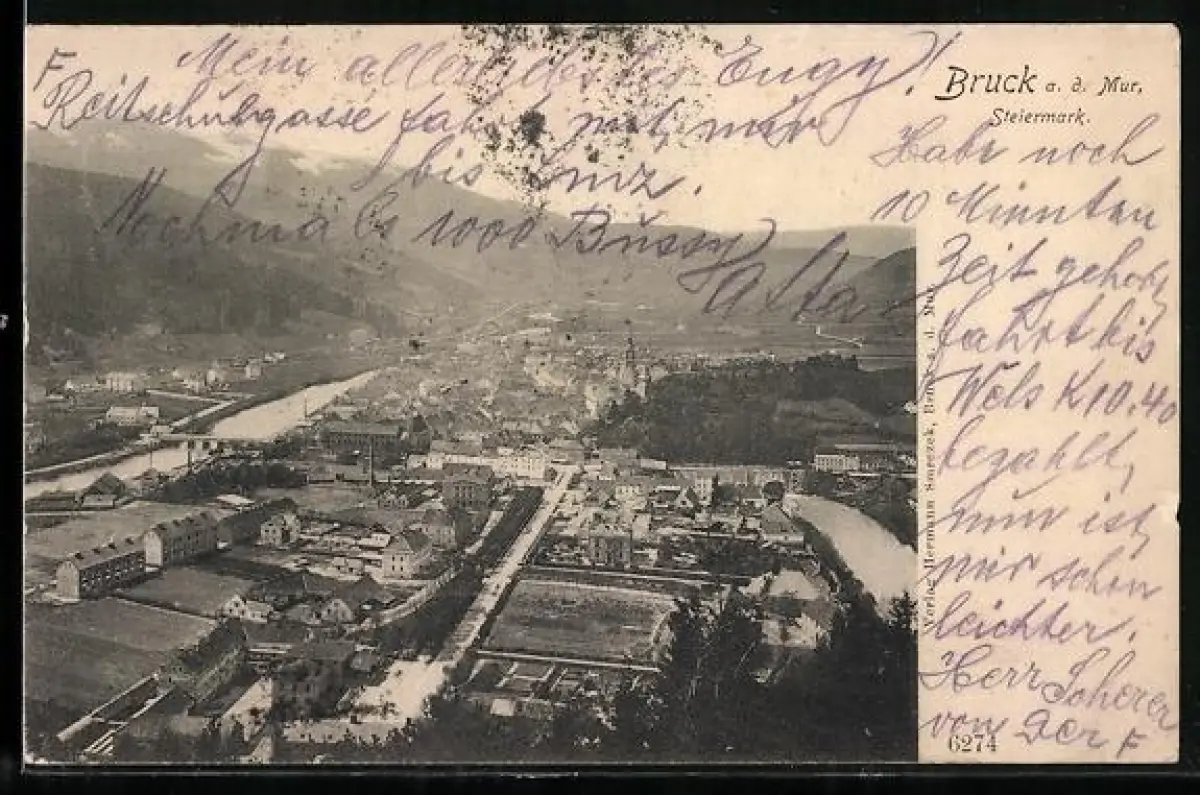 Bruck a. d. Mur,
Steiermark.
Mein allerbestes Engy!
Habe noch
10 Minuten
Zeit gehabt
fahrt bis
Wels K 10.40
bezahlt,
nun ist
mir schon
leichter.
Herr Scherer
von der F
F
Reitschulgasse fahrt mit mir
bis Linz.
Nochmals 1000 Bussy
Verlag Hermann d. Mur
6274